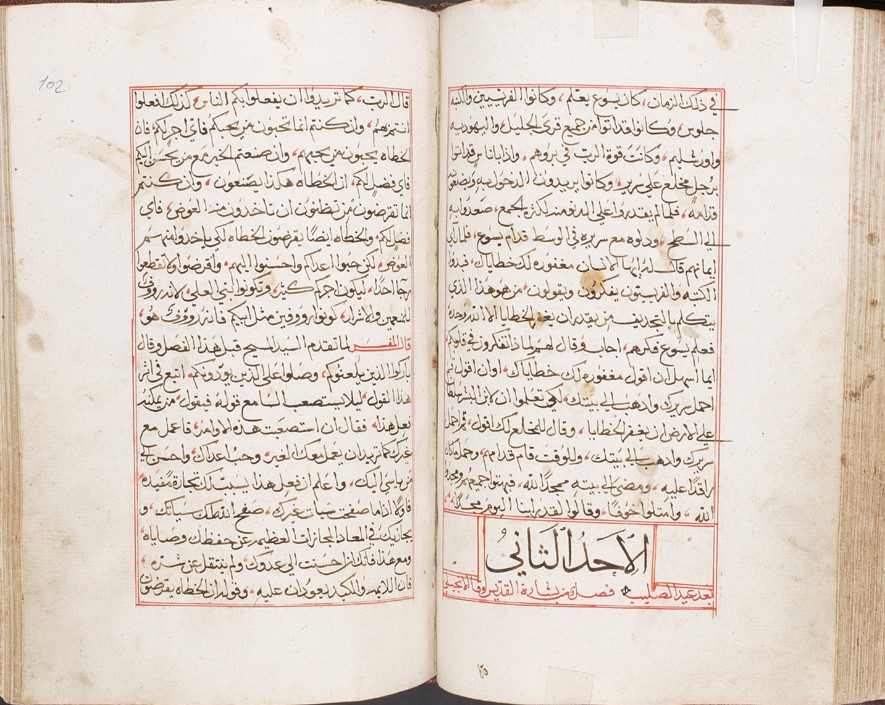 في ذلك الزمان، كان يسوع يعلم، وكانوا الفرنسيين والكتبه
جلوس، وكانوا قد اتوا من جميع قرى الجليل، واليهوديه
واورشليم، وكانت قوة الرب في بروهم، واذا بناس قد اتوا
برجل مخلع على سرير، وكانوا يريدون الدخول به وليضعوه
قدامه، فلما لم يقدروا على الدنو منه لكثرة الجمع، صعدوا به
الى السطح، ودلوه مع سريره في الوسط قدام يسوع، فلما راى
ايمانهم قال له ايها الانسان مغفوره لك خطاياك، فبدوا
الكتبه والفريسيون يفكرون ويقولون، من هو هذا الذي
يتكلم بالتجديف من يقدر ان يغفر الخطايا الا الله وحده
فعلم يسوع فكرهم، اجاب وقال لهم لماذا تفكرون في قلوبكم
ايما اسهل ان اقول مغفوره لك خطاياك، اوان اقول قم
احمل سريرك واذهب الى بيتك، لكي تعلموا ان لابن البشر سلطان
على الارض ان يغفر الخطايا، وقال للمخلع لك اقول، قم احمل
سريرك واذهب الى بيتك، وللوقت قام قدامهم، وحمل ما كان
راقدا عليه، ومضى الى بيته ممجدا لله، فبهتوا جميعهم ومجدوا
الله، وامتلوا خوفا، وقالوا لقد راينا اليوم مجدا،
الاحد الثاني
بعد عيد الصليب فصل من بشارة القديس لوقا الانجيلي
102
قال الرب، كما تريدوا ان يفعلوا بكم الناس، كذلك افعلوا
انتم بهم، وان كنتم انما تحبون من يحبكم فاي اجر لكم، فان
الخطاه يحبون من يحبهم، وان صنعتم الخير مع من يحسن اليكم
فاي فضل لكم، ان الخطاه هكذا يصنعون، وان كنتم
انما تقرضون من تظنون ان تاخذون منه العوض، فاي
فضل لكم، والخطاه ايضا يقرضون الخطاه لكي ياخذوا منهم
العوض، لكن حبوا اعداكم واحسنوا اليهم، واقرضوا ولا تقطعوا
رجا احدا، ليكون اجركم كثير، وتكونوا بني العلي، لانه رووف
للمنعمين والاشرار، كونوا رووفين مثل ابيكم فانه رووف هو،
قال المفسر لما تقدم السيد المسيح قبل هذا الفصل وقال
باركوا الذين يلعنوكم، وصلوا على الذين يوذونكم، اتبع في اثر
هذا القول، ليلا يستصعب السامع قوله فيقول، من يمكنه
يعمل هذا، فقال ان استصعبت هذه الاوامر، فاعمل مع
غيرك كما تريد ان يعمل معك الغير، وحب اعداك، واحسن الى
من ياسي اليك، واعلم ان فعل هذا يسبب لك تجارة مفيده
فاولا اذا ما صفحت سيات غيرك، صفح الله لك سياتك، و
يجازيك في المعاد المجازات العظيمه عن حفظك وصاياه
ومع هذا فانك ان احسنت الى عدوك، ولم ينتقل عن شره
فان اللايمه والمكيد يعودان عليه، وقوله ان الخطاه يقرضون